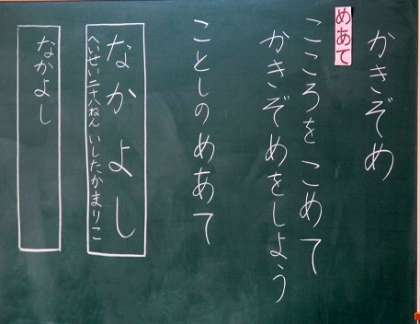 かきぞめ
めあて
こころをこめて
かきぞめをしよう
ことしのめあて
なかよし
へいせい二十八ねん いしたかまりこ
なかよし